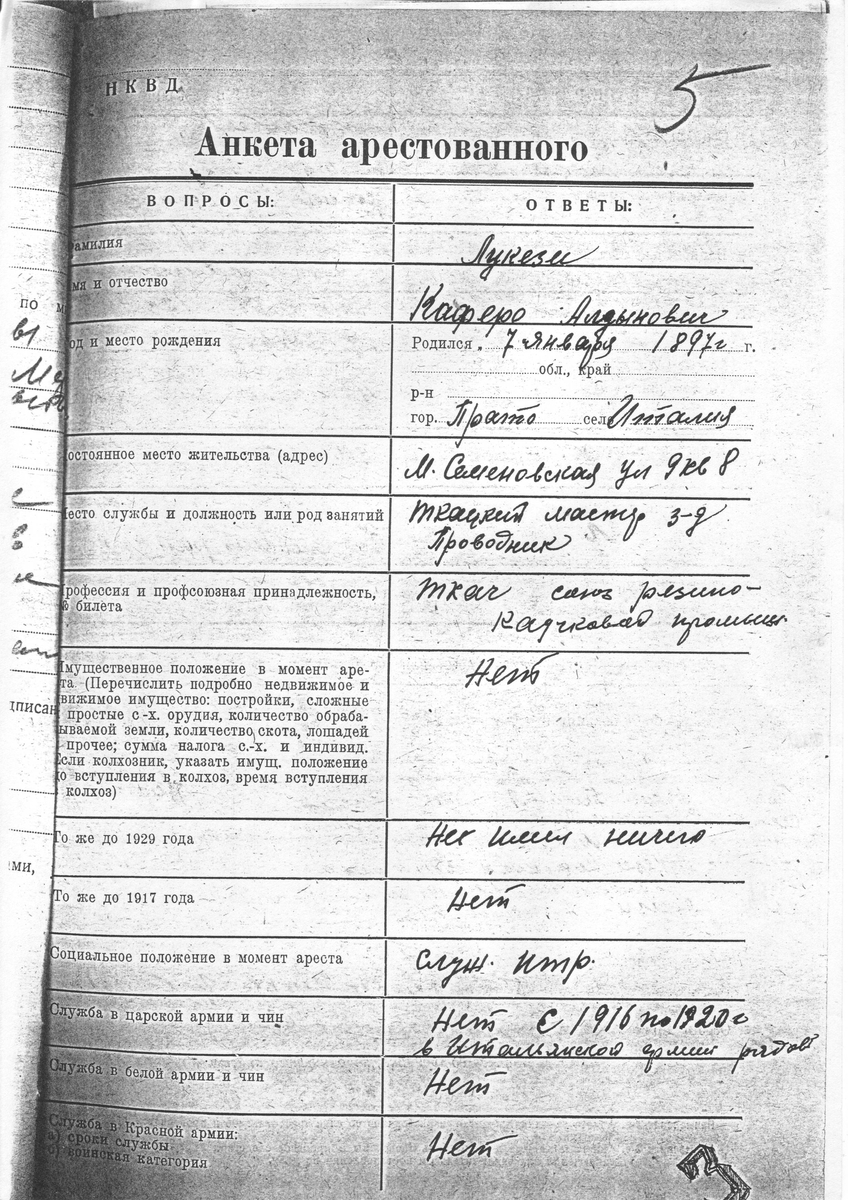 НКВД
5
Анкета арестованного
ВОПРОСЫ:
ОТВЕТЫ:
амилия
Лукези
мя и отчество
Каферо Алдынович
од и место рождения
Родился 7 января 1897г г.
обл., край
р-н
гор. Прато село Италия
остоянное место жительства (адрес)
М. Семеновская ул 9 кв 8
есто службы и должность или род занятий
ткацкий мастер з-д
Проводник
рофессия и профсоюзная принадлежность,
№ билета
ткач союз резино-
каучковой промышл.
мущественное положение в момент аре-
та (Перечислить подробно недвижимое и
вижимое имущество: постройки, сложные
простые с-х. орудия, количество обраба-
ываемой земли, количество скота, лошадей
прочее; сумма налога с.-х. и индивид.
сли колхозник, указать имущ. положение
до вступления в колхоз, время вступления
колхоз)
Нет
То же до 1929 года
имел ничего
То же до 1917 года
Нет
Социальное положение в момент ареста
служ. итр.
Служба в царской армии и чин
Нет С 1916 по 1920г
в Итальянской армии рядов
Служба в белой армии и чин
Нет
Служба в Красной армии:
а) сроки службы
б) воинская категория
Нет
по м
дписан
ами,